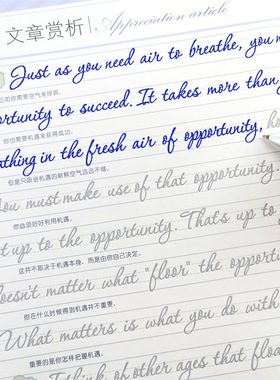 文章赏析
Appreciation article
Just as you need air to breathe, you n
正如你需要空气来呼吸,
ortunity to succeed. It takes more than
你也需要机遇来获得成功。
athing in the fresh air of opportunity,
但是只吸进机遇的新鲜空气远远不够。
You must make use of that opportunity.
你必须好好利用机遇。
t up to the opportunity. That's up to y
这并不取决于机遇本身,而是由你自己决定。
oesn't matter what "floor" the opportun
你在什么时候得到机遇并不重要,
What matters is what you do with
重要的是你怎样把握机遇。
Think of other ages that floa